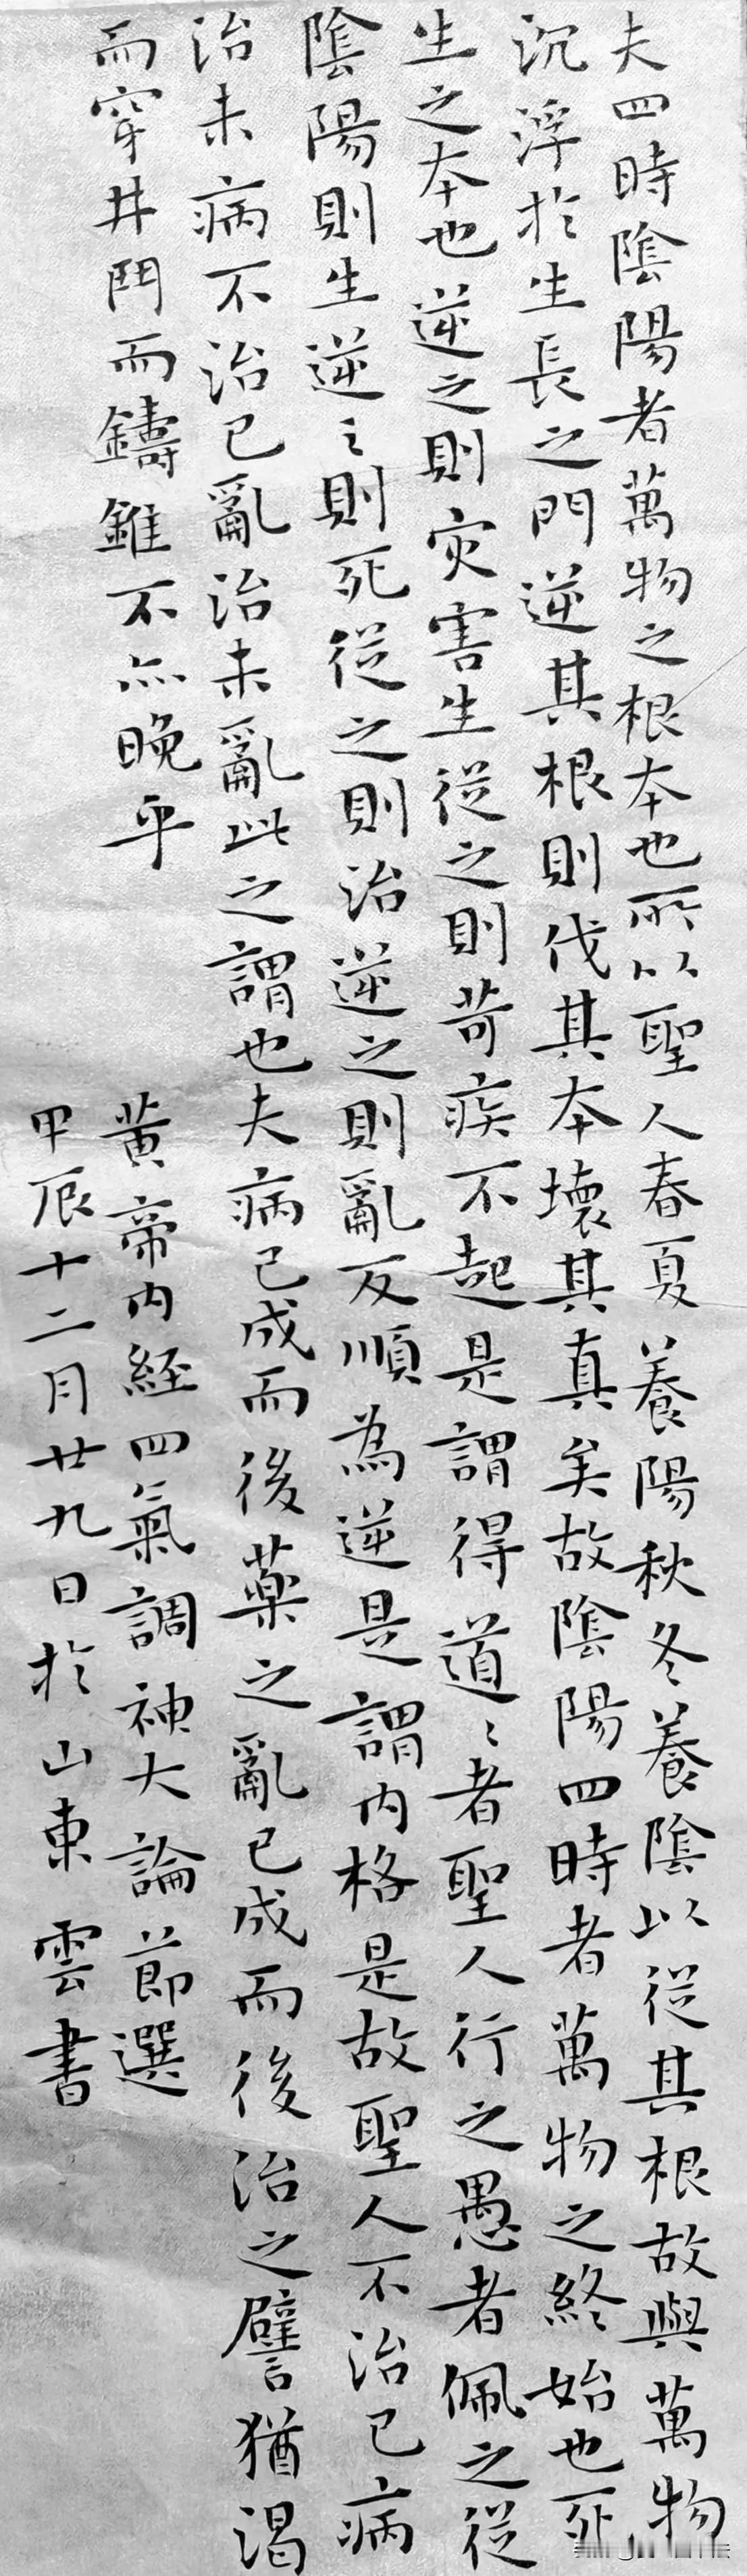 夫四時陰陽者萬物之根本也所以聖人春夏養陽秋冬養陰以從其根故與萬物
沉浮於生長之門逆其根則伐其本壞其真矣故陰陽四時者萬物之終始也死
生之本也逆之則灾害生從之則苛疾不起是謂得道〻者聖人行之愚者佩之從
陰陽則生逆〻則死從之則治逆之則亂反順為逆是謂内格是故聖人不治已病
治未病不治已亂治未亂此之謂也夫病已成而後藥之亂已成而後治之譬猶渴
而穿井鬥而鑄錐不亦晚乎
黄帝内經四氣調神大論節選
甲辰十二月廿九日於山東雲書